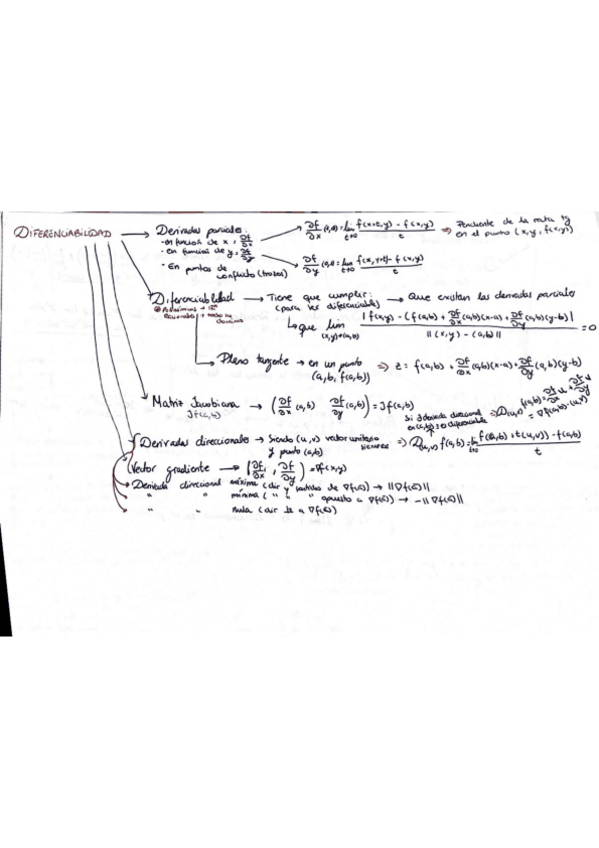 DIFERENCIABILIDAD
Derivadas parciales:
- en función de x = ∂f/∂x
- en función de y = ∂f/∂y
- En puntos de conflicto (trozos)
∂f/∂x = lim t→0 f(x+t,y) - f(x,y) / t
⇒ Pendiente de la recta tg
en el punto (x,y, f(x,y))
∂f/∂y = lim t→0 f(x,y+t) - f(x,y) / t
Diferenciabilidad → Tiene que cumplir: → Que existan las derivadas parciales
(para ser diferenciable)
↳ que lim (x,y)→(a,b) | f(x,y) - (f(a,b) + ∂f/∂x (a,b)(x-a) + ∂f/∂y (a,b)(y-b) | / || (x,y) - (a,b) || = 0
Plano tangente → en un punto ⇒ z = f(a,b) + ∂f/∂x (a,b)(x-a) + ∂f/∂y (a,b)(y-b)
(a,b, f(a,b))
Matriz Jacobiana → (∂f/∂x (a,b) ∂f/∂y (a,b)) = Jf(a,b)
Jf(a,b)
Derivadas direccionales → Siendo (u,v) vector unitario siempre ⇒ D(u,v) f(a,b) = lim t→0 f((a,b)+t(u,v)) - f(a,b) / t
y punto (a,b)
Vector gradiente → (∂f/∂x , ∂f/∂y) = ∇f(x,y)
Derivada direccional máxima (dir y sentido de ∇f(a)) → ||∇f(a)||
" " mínima (" " " opuesto a ∇f(a)) → -||∇f(a)||
" " nula (dir ⊥ a ∇f(a))